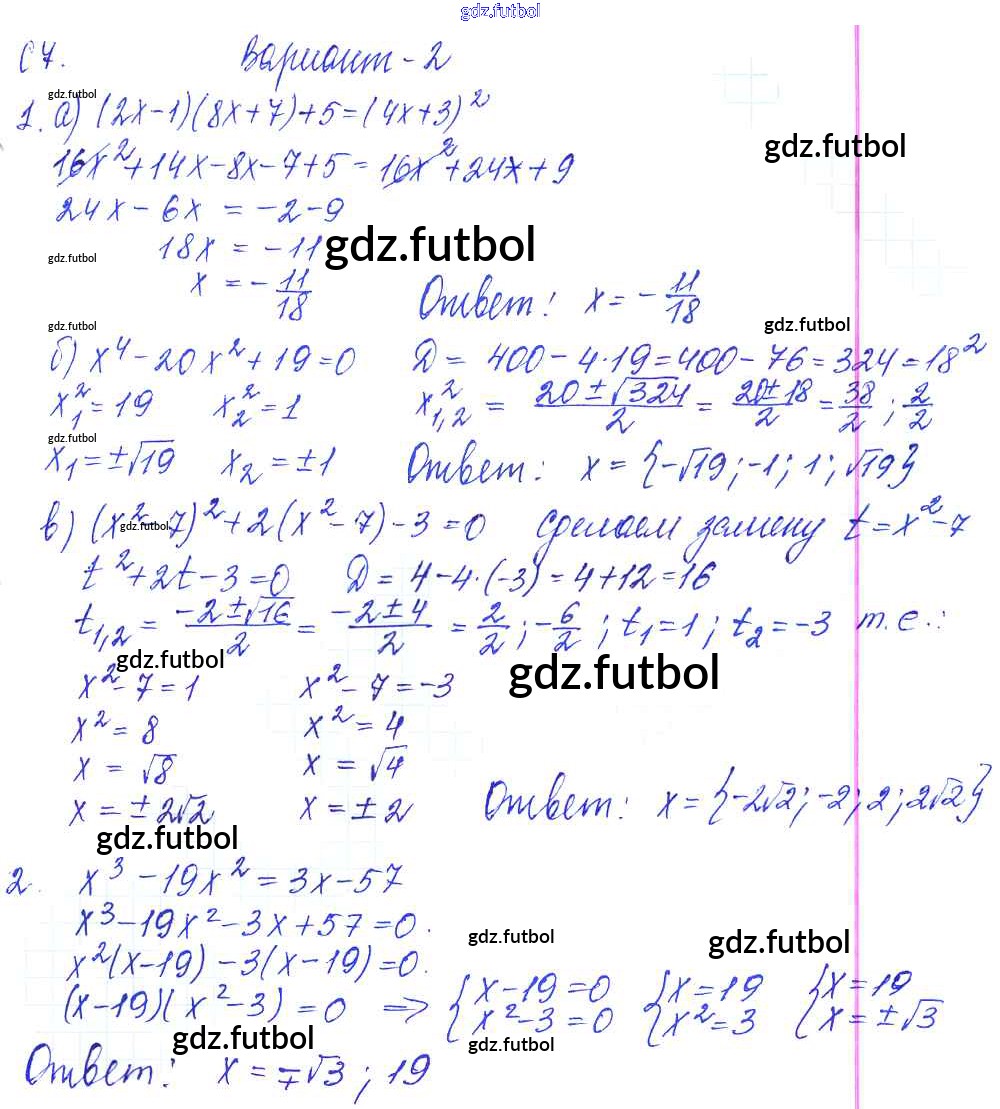 gdz.futbol
С7. Вариант - 2
gdz.futbol
1. а) (2x-1)(8x+7)+5=(4x+3)²
gdz.futbol
16x²+14x-8x-7+5=16x²+24x+9
24x-6x = -2-9
18x = -11
gdz.futbol
gdz.futbol
x = -11/18 Ответ: x = -11/18
gdz.futbol
gdz.futbol
б) x⁴-20x²+19=0 D = 400-4·19=400-76=324=18²
x₁²=19 x₂²=1 x²₁,₂ = (20±√324)/2 = (20±18)/2 = 38/2 ; 2/2
gdz.futbol
x₁=±√19 x₂=±1 Ответ: x = {-√19;-1; 1; √19}
в) (x²-7)²+2(x²-7)-3=0 Сделаем замену t=x²-7
gdz.futbol
t²+2t-3=0 D = 4-4·(-3)=4+12=16
t₁,₂ = (-2±√16)/2 = (-2±4)/2 = 2/2 ; -6/2 ; t₁=1 ; t₂=-3 т.е.:
gdz.futbol
gdz.futbol
x²-7=1 x²-7=-3
x²=8 x²=4
x = √8 x = √4
x = ±2√2 x = ±2 Ответ: x = {-2√2; -2; 2; 2√2}
gdz.futbol
2. x³-19x²=3x-57
x³-19x²-3x+57=0.
gdz.futbol
gdz.futbol
x²(x-19)-3(x-19)=0.
(x-19)(x²-3)=0 ⇒ {x-19=0 {x=19 {x=19
{x²-3=0 {x²=3 {x=±√3
gdz.futbol
gdz.futbol
Ответ: x = ∓√3 ; 19